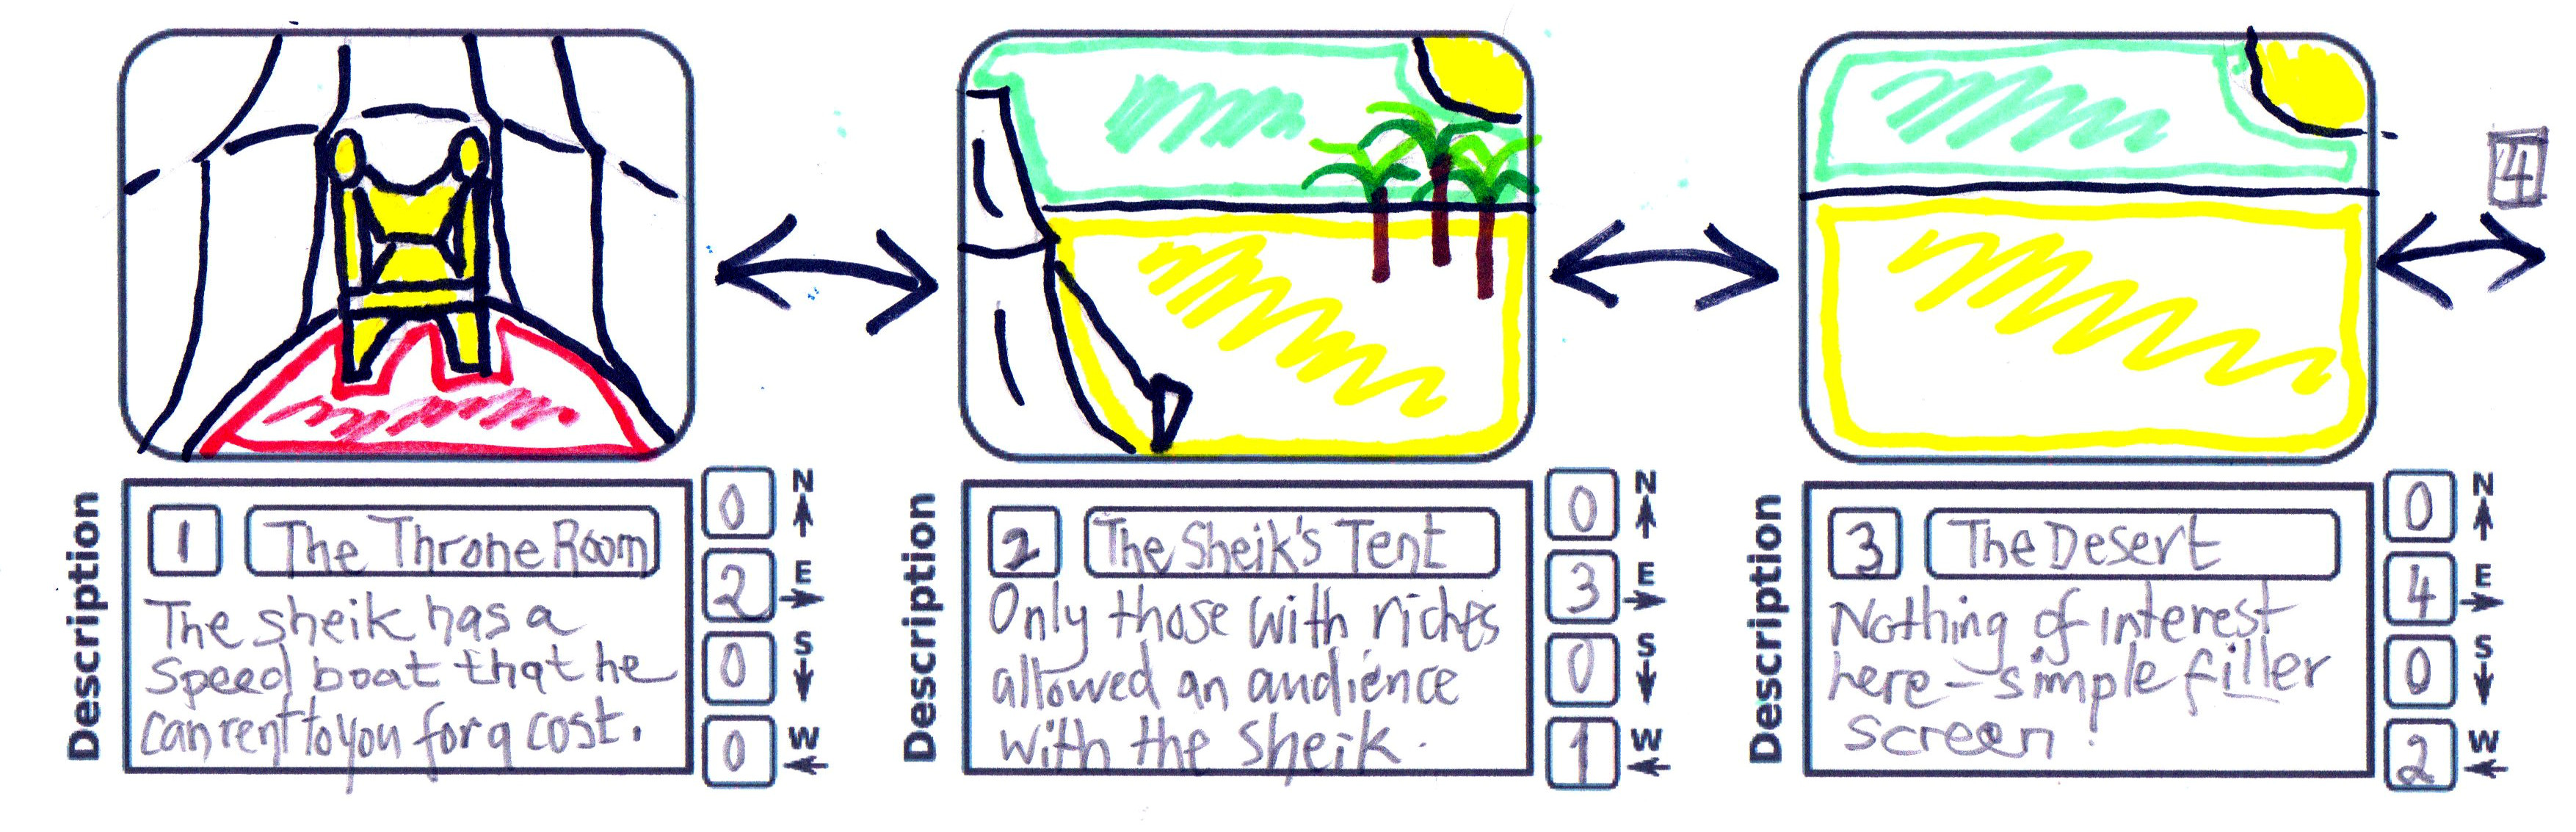 4
Description
1
The Throne Room
The sheik has a
speed boat that he
can rent to you for a cost.
0
N
2
E
0
S
0
W
Description
2
The Sheik's Tent
Only those with riches
allowed an audience
with the sheik.
0
N
3
E
0
S
1
W
Description
3
The Desert
Nothing of interest
here - simple filler
screen!
0
N
4
E
0
S
2
W